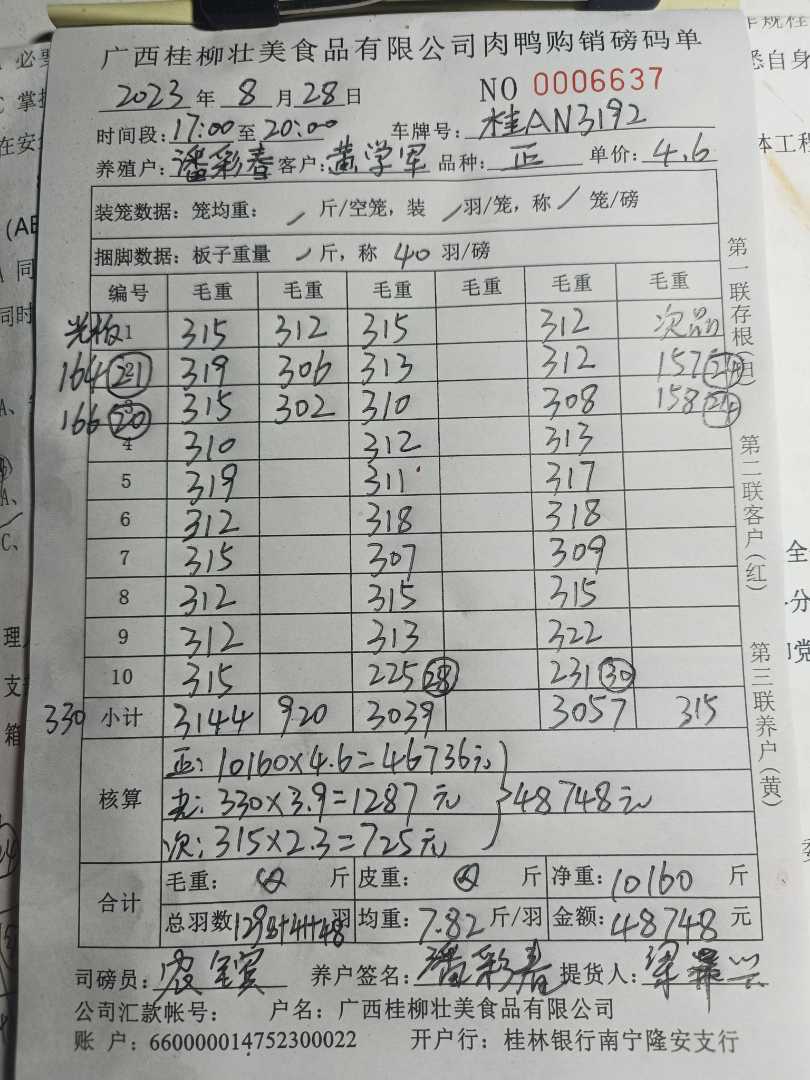 广西桂柳壮美食品有限公司肉鸭购销磅码单
2023 年 8 月 28 日 NO 0006637
时间段: 17:00 至 20:00 车牌号: 桂AN3192
养殖户: 潘彩春 客户: 黄学军 品种: 正 单价: 4.6
装笼数据: 笼均重: / 斤/空笼, 装 / 羽/笼, 称 / 笼/磅
捆脚数据: 板子重量 / 斤, 称 40 羽/磅
编号 毛重 毛重 毛重 毛重 毛重 毛重
光板 1 315 312 315 312 次品
164 21 2 319 306 313 312 157 24
166 20 3 315 302 310 308 158 24
4 310 312 313
5 319 311 317
6 312 318 318
7 315 307 309
8 312 315 315
9 312 313 322
10 315 225 28 231 30
330 小计 3144 920 3039 3057 315
核算
正: 10160×4.6=46736元
光: 330×3.9=1287元
次: 315×2.3=725元
48748元
合计
毛重: 斤 皮重: 斤 净重: 10160 斤
总羽数 羽 均重: 7.82 斤/羽 金额: 48748 元
司磅员: 养户签名: 潘彩春 提货人:
公司汇款帐号: 户名: 广西桂柳壮美食品有限公司
账 户: 660000014752300022 开户行: 桂林银行南宁隆安支行
第一联存根
第二联客户(红)
第三联养户(黄)